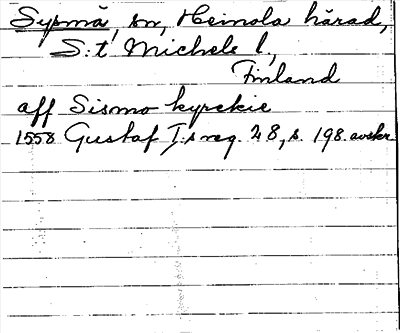 Sysmä, sn, Heinola härad,
S:t Michels l,
Finland
aff Sismo kyrckie
1558 Gustaf I:s reg. 28, s. 198. avskr.